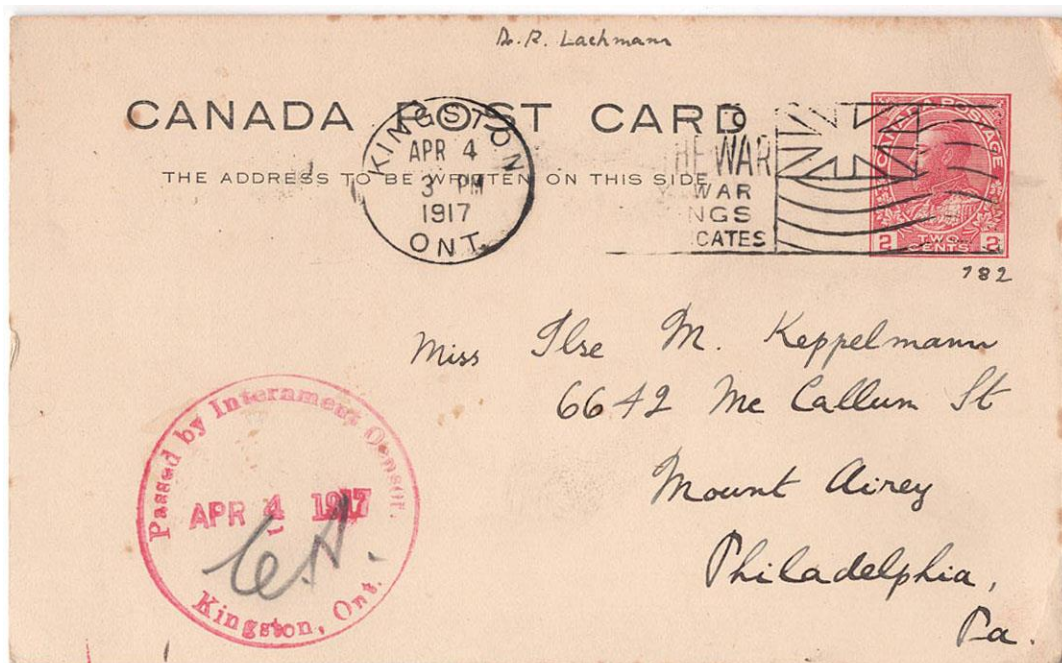 D. R. Lachmann
CANADA POST CARD
THE ADDRESS TO BE WRITTEN ON THIS SIDE
KINGSTON
APR 4
3 PM
1917
ONT.
HE WAR
WAR
NGS
CATES
CANADA POSTAGE
2 TWO CENTS 2
782
Miss Ilse M. Keppelmann
6642 Mc Callum St
Mount Airey
Philadelphia,
Pa.
Passed by Internment Censor.
APR 4 1917
Kingston, Ont.